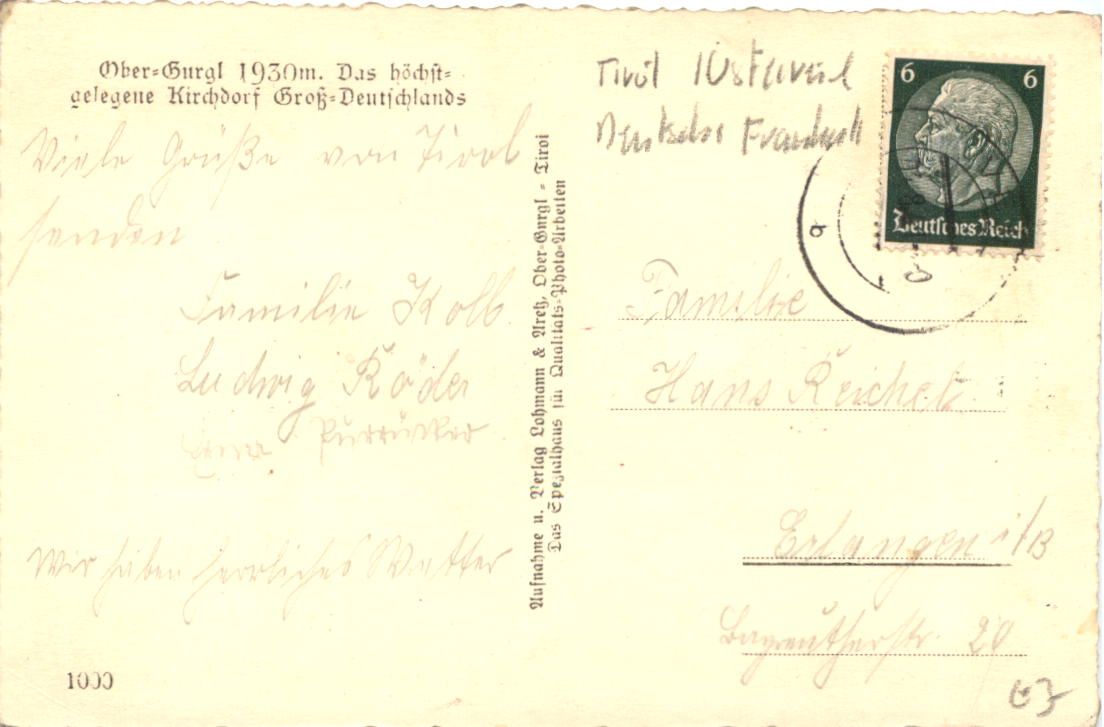 Ober-Gurgl 1930m. Das höchst-
gelegene Kirchdorf Groß-Deutschlands
Viele Grüße von Tirol
senden
Familie Kolb
Ludwig Röder
Wir haben herrliches Wetter
1000
Aufnahme u. Verlag Lohmann & Aretz, Ober-Gurgl - Tirol
Das Spezialhaus für Qualitäts-Photo-Arbeiten
Tirol
6 6
Deutsches Reich
Familie
Hans Reichel
Erlangen i/B
Bayreutherstr. 29